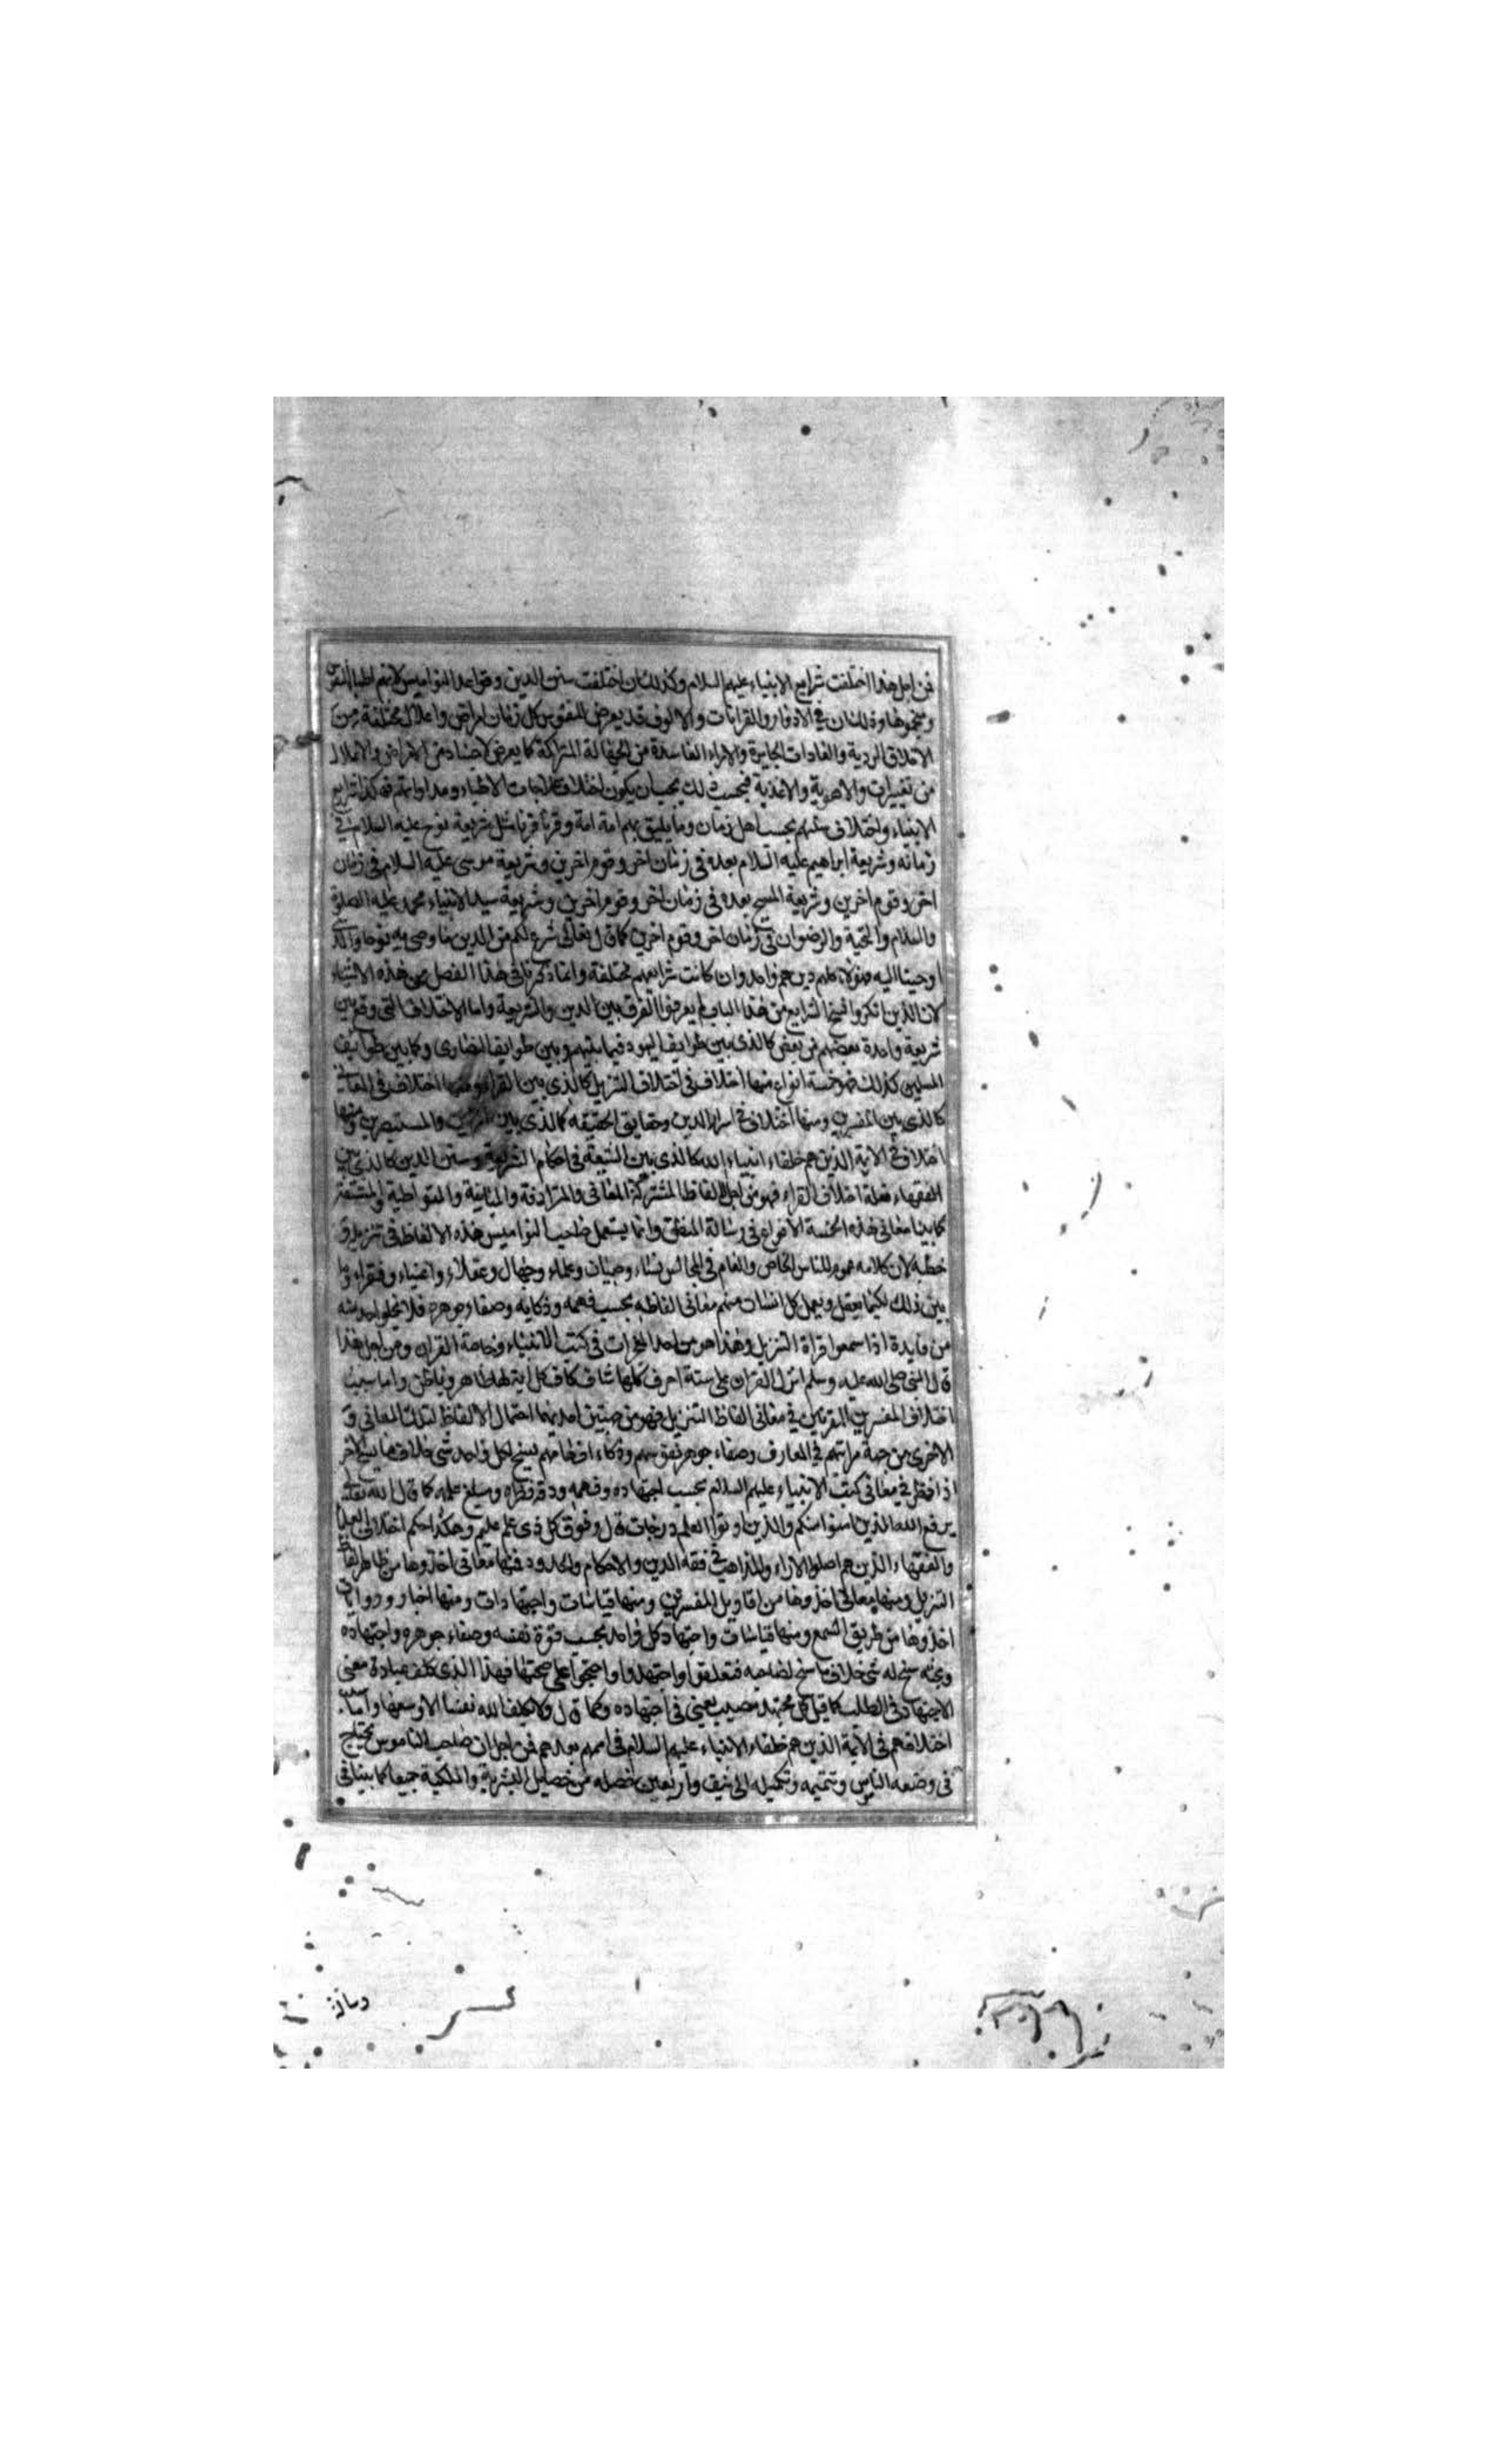 فمن اجل هذا اختلفت شرايع الانبياء عليهم السلام وكذلك اختلفت سنن الدين وقواعد النواميس لانهم اطباء النفوس
ومنجموها وذلك ان في الادوار والقرانات والالوف قد يعرض للنفوس كل زمان امراض واعلال مختلفة من
الاخلاق الردية والعادات الجايرة والاراء الفاسدة من الجهالة المتراكمة كما يعرض للاجساد من الامراض والاعلال
من تغييرات والاهوية والاغذية فبحسب ذلك يجب ان يكون اختلاف علاجات الاطباء ومداواتهم فهكذا شرايع
الانبياء واختلاف سننهم بحسب اهل زمان وما يليق بهم امة امة وقرنا قرنا مثل شريعة نوح عليه السلام في
زمانه وشريعة ابراهيم عليه السلام بعده في زمان اخر وقوم اخرين وشريعة موسى عليه السلام في زمان
اخر وقوم اخرين وشريعة المسيح بعده في زمان اخر وقوم اخرين وشريعة سيد الانبياء محمد عليه الصلوة
والسلام والتحية والرضوان في زمان اخر وقوم اخرين كما قال تعالى شرع لكم من الدين ما وصى به نوحا والذي
اوحينا اليه فهؤلاء كلهم دينهم واحد وان كانت شرايعهم مختلفة وانما ذكرنا في هذا الفصل من هذه الاشياء
لان الذين انكروا نسخ الشرايع من هذا الباب لم يعرفوا الفرق بين الدين والشريعة واما الاختلاف التي وقع بين
شريعة واحدة بعضهم من بعض كالذي بين طوايف اليهود فيما بينهم وبين طوايف النصارى وكما بين طوايف
المسلمين كذلك فهو خمسة انواع منها اختلاف في اختلاف التنزيل كالذي بين القراء ومنها اختلاف في المعاني
كالذي بين المفسرين ومنها اختلاف في اسرار الدين وحقايق الحقيقه كالذي بين والمستبصرين ومنها
اختلاف في الايمة الذين هم خلفاء انبياء الله كالذي بين الشيعة في احكام الشريعة وسنن الدين كالذي بين
الفقهاء فعلة اختلاف القراء فهو من اجل الالفاظ المشتركة المعاني والمترادفة والمتباينة والمتواطية والمشتقة
كما بينا معاني هذه الخمسة الانواع في رسالة المنطق وانما يستعمل صاحب النواميس هذه الالفاظ في تنزيله و
خطبه لان كلامه عموم للناس الخاص والعام في المجالس نساء وصبيان وعلماء وجهال وعقلاء واغنياء وفقراء وما
بين ذلك لكيما يعقل ويعمل كل انسان منهم معاني الفاظه بحسب فهمه وذكايه وصفاء جوهره فلا يخلو احد منه
من فايدة اذا سمعوا قراة التنزيل وهذا هو من احد المعجزات في كتب الانبياء وخاصة القران ومن اجل هذا
قال النبي صلى الله عليه وسلم انزل القران على ستة احرف كلها شاف كاف كل اية لها ظاهر وباطن واما سبب
اختلاف المفسرين في معاني الفاظ التنزيل فهو من جهتين احديهما احتمال الالفاظ لتلك المعاني و
الاخرى من جهة مراتبهم في المعارف وصفاء جوهر نفوسهم وذكاء افهامهم يسنح لكل واحد شي خلاف ما يسنح للاخر
اذا فكر في معاني كتب الانبياء عليهم السلام بحسب اجتهاده وفهمه ودقة نظره ومبلغ علمه كما قال الله تعالى
يرفع الله الذين امنوا منكم والذين اوتوا العلم درجات قال وفوق كل ذي علم عليم وهكذا حكم اختلاف العلماء
والفقهاء الذين هم اصلوا الاراء والمذاهب في فقه الدين والاحكام والحدود فمنها معاني اخذوها من ظاهر الفاظ
التنزيل ومنها معاني اخذوها من اقاويل المفسرين ومنها قياسات واجتهادات ومنها اخبار وروايات
اخذوها من طريق السمع ومنها قياسات واجتهاد كل واحد بحسب قوة نفسه وصفاء جوهره واجتهاده
وبحثه سنح له شي خلاف ما سنح لصاحبه فتعلقوا واجتهدوا واحتجوا على صحتها فهذا الذي كلف عباده معنى
الاجتهاد في الطلب كما قيل كل مجتهد مصيب يعني في اجتهاده وكما قال ولا يكلف الله نفسا الا وسعها واما سبب
اختلافهم في الايمة الذين هم خلفاء الانبياء عليهم السلام في اممهم بعدهم فمن اجل ان صاحب الناموس يحتاج
في وضعه الناس وتتميمه وتكميله الى نيف واربعين خصله من خصايل البشرية والملكية جميعا كما بينا في